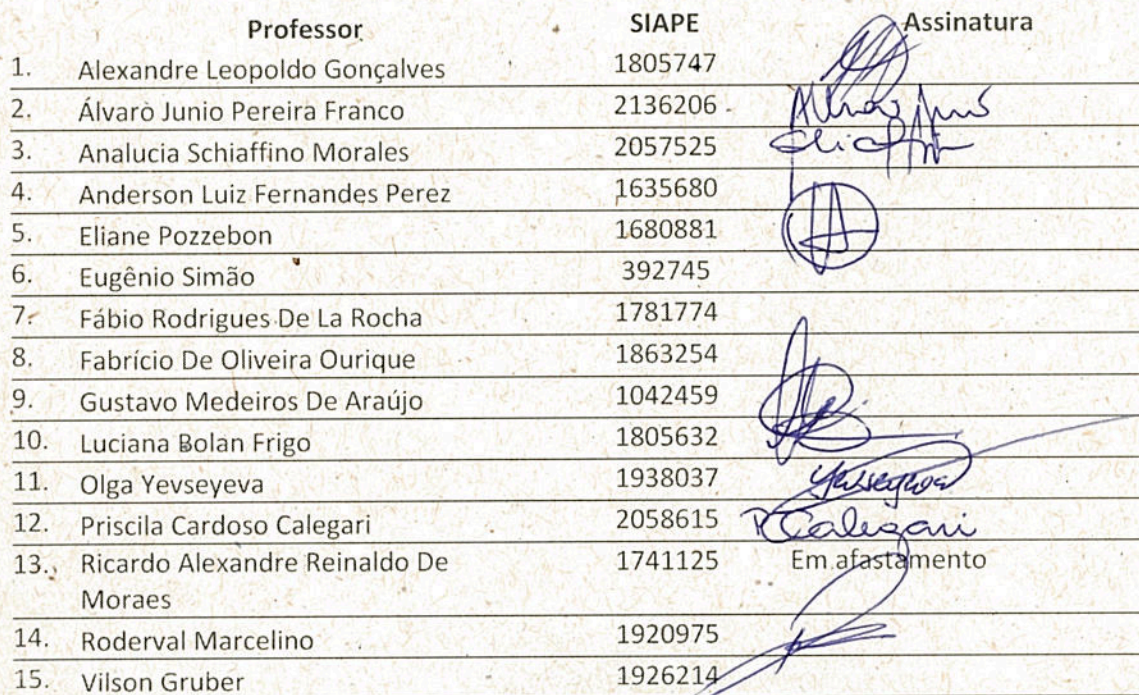 Professor SIAPE Assinatura
1. Alexandre Leopoldo Gonçalves 1805747
2. Álvaro Junio Pereira Franco 2136206
3. Analucia Schiaffino Morales 2057525
4. Anderson Luiz Fernandes Perez 1635680
5. Eliane Pozzebon 1680881
6. Eugênio Simão 392745
7. Fábio Rodrigues De La Rocha 1781774
8. Fabrício De Oliveira Ourique 1863254
9. Gustavo Medeiros De Araújo 1042459
10. Luciana Bolan Frigo 1805632
11. Olga Yevseyeva 1938037 Yevseyeva
12. Priscila Cardoso Calegari 2058615 PCalegari
13. Ricardo Alexandre Reinaldo De 1741125 Em afastamento
Moraes
14. Roderval Marcelino 1920975
15. Vilson Gruber 1926214